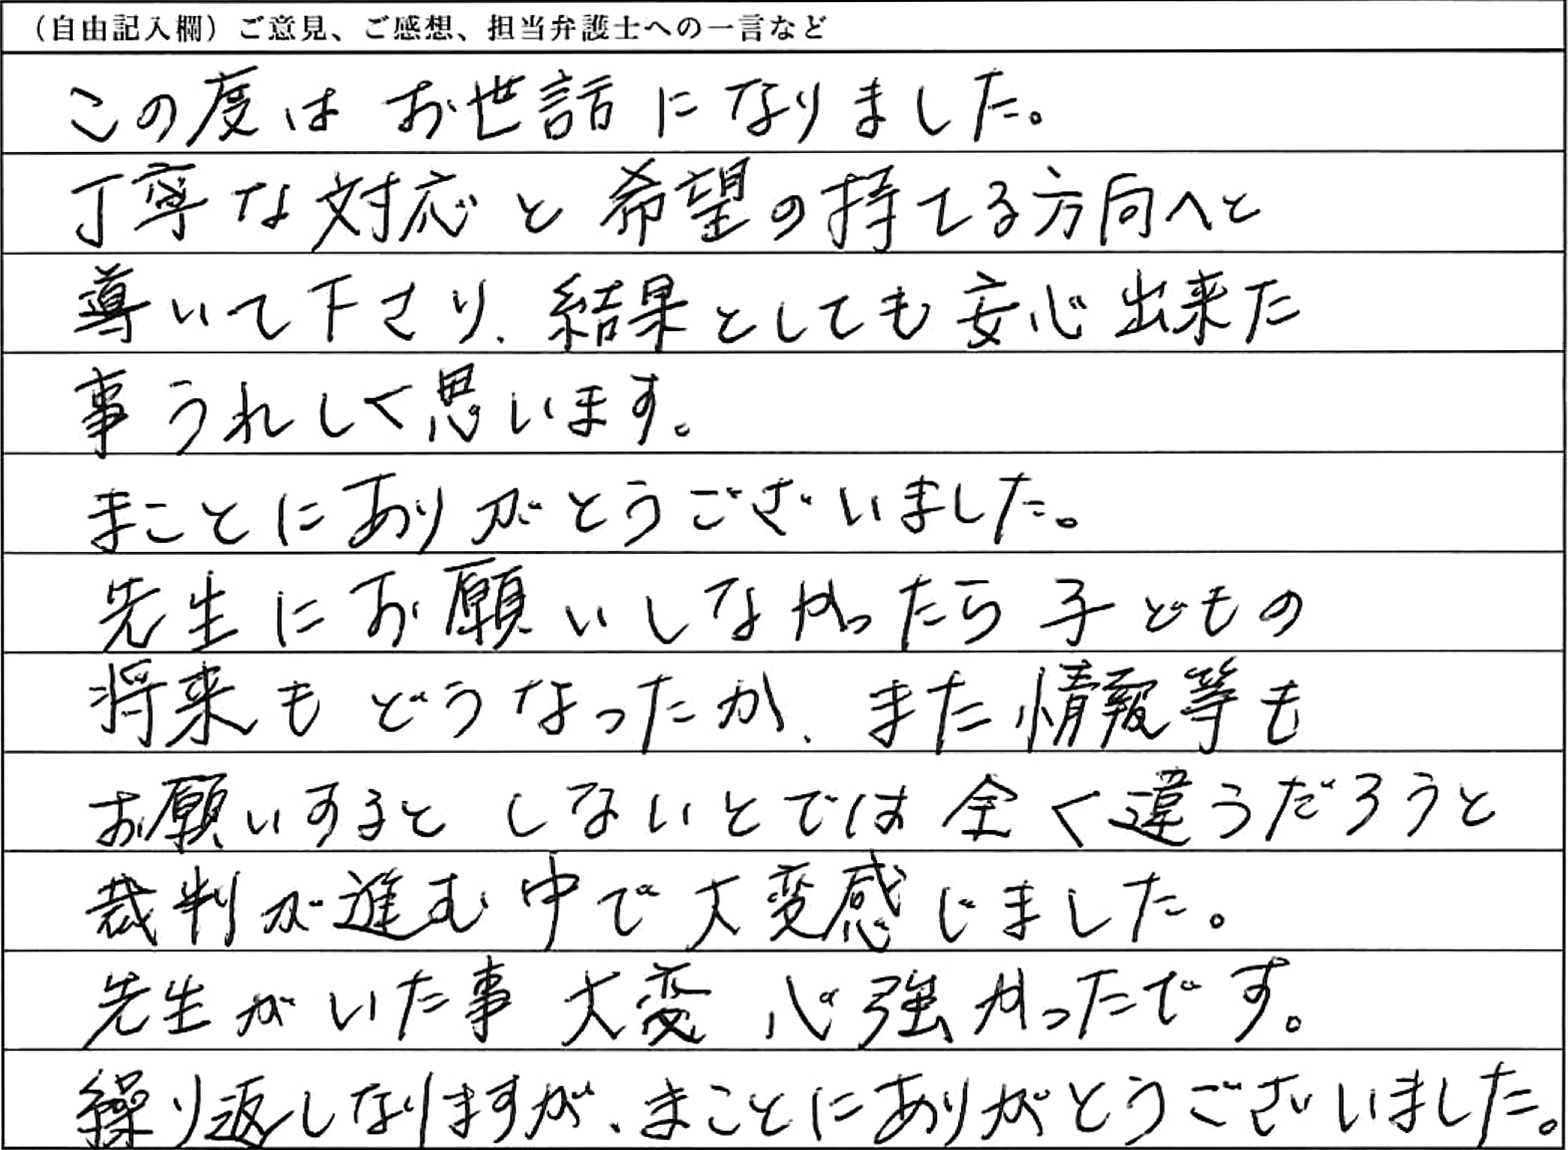 （自由記入欄）ご意見、ご感想、担当弁護士への一言など
この度はお世話になりました。
丁寧な対応と希望の持てる方向へと
導いて下さり、結果としても安心出来た
事うれしく思います。
まことにありがとうございました。
先生にお願いしなかったら子どもの
将来もどうなったか、また情報等も
お願いするとしないとでは全く違うだろうと
裁判が進む中で大変感じました。
先生がいた事大変心強かったです。
繰り返しなりますが、まことにありがとうございました。